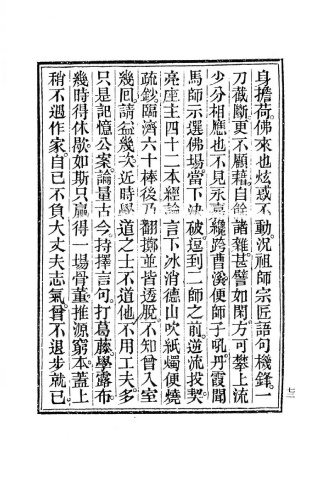 身擔荷。佛來也炫惑不動。況祖師宗匠語句機鋒。一
刀截斷更不顧藉。自餘諸雜甚譬如閑方可攀上流
少分相應也不見永嘉纔跨曹溪便師子吼。丹霞聞
馬師示選佛場。當下決破。逗到二師之前。逆流投契。
亮座主四十二本經論言下冰消德山吹紙燭便燒
疏鈔。臨濟六十棒後乃翻擲。並皆透脫不知曾入室
幾回。請益幾次。近時學道之士不道他不用工夫。多
只是記憶公案。論量古今。持擇言句。打葛藤學露布
幾時得休歇。如斯只贏得一場骨董。推源窮本。蓋上
稍不遇作家。自己不負大丈夫志氣。曾不退步就已